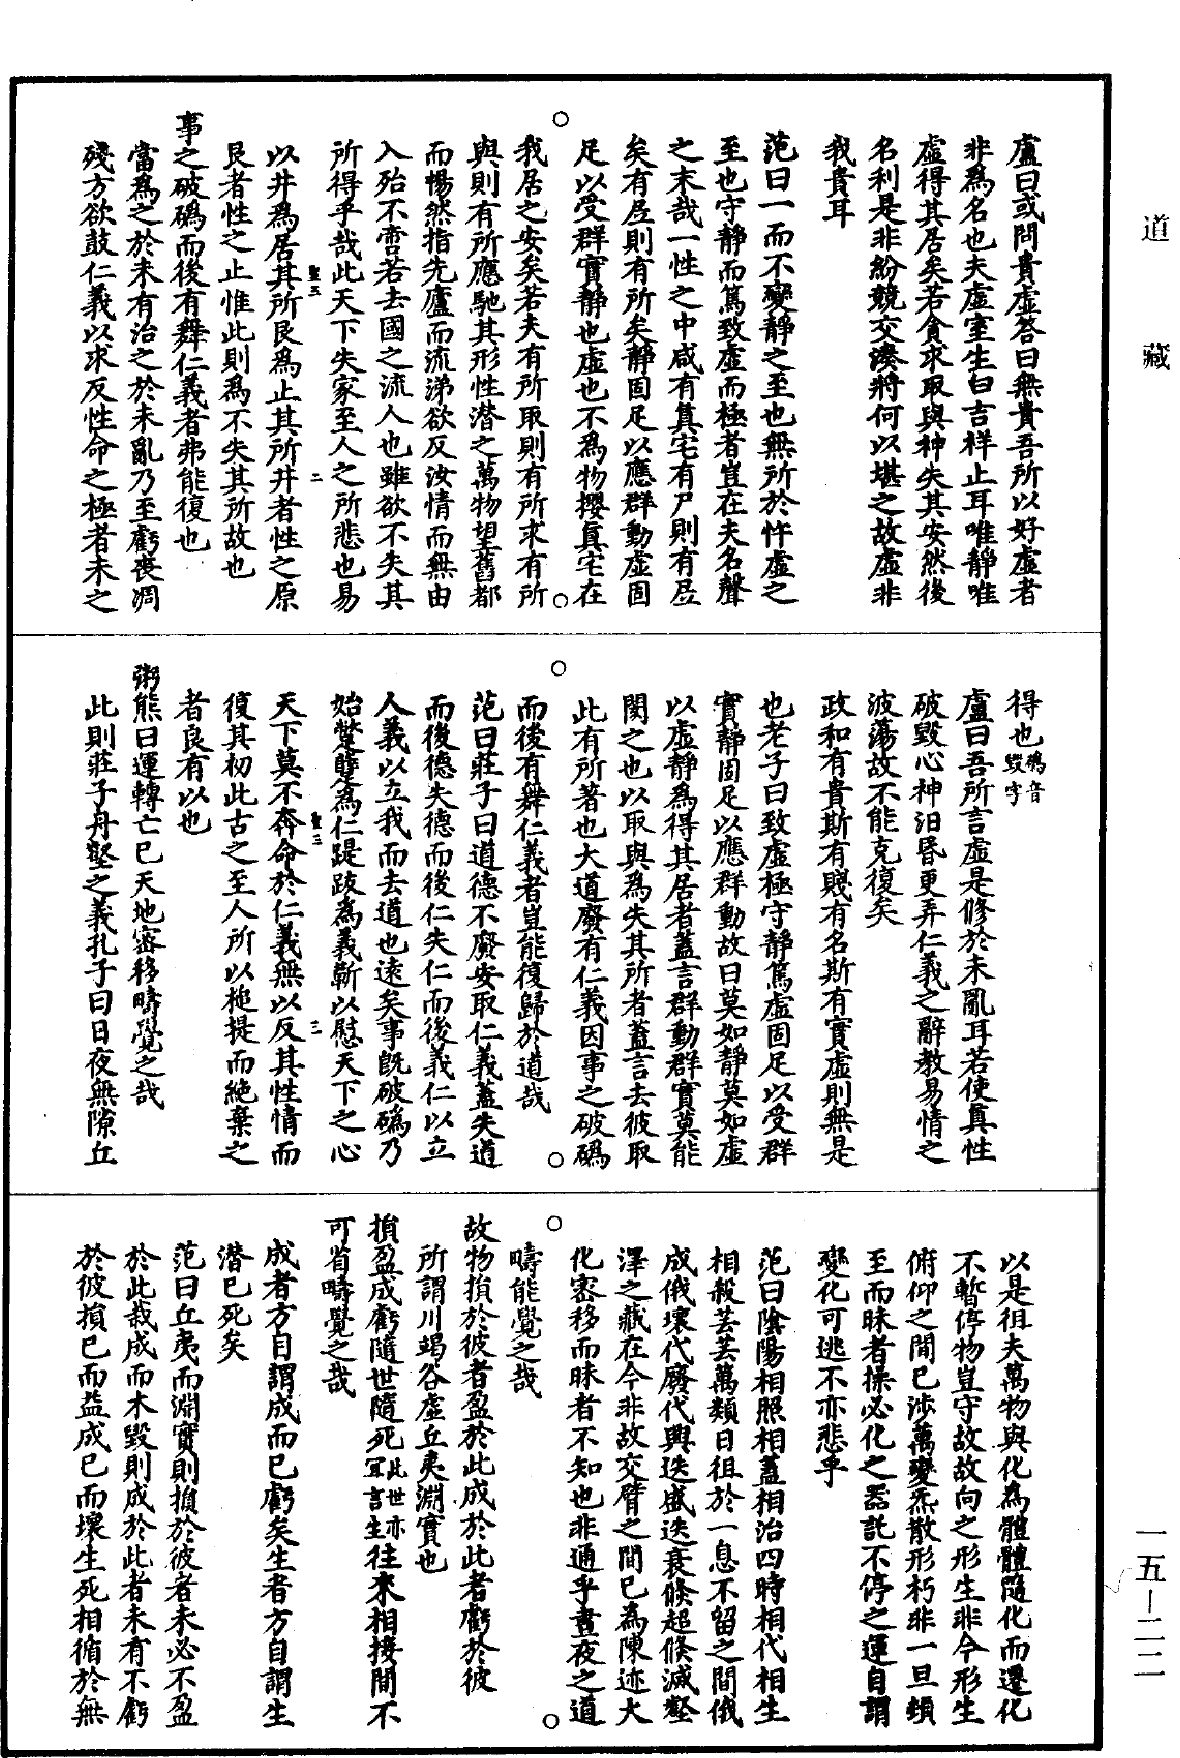 道藏
盧曰或問貴虛答曰無貴吾所以好虛者
非爲名也夫虛室生白吉祥止耳唯靜唯
虛得其居矣若貪求取與神失其安然後
名利是非紛競交湊將何以堪之故虛非
我貴耳
范曰一而不變靜之至也無所於忤虛之
至也守靜而篤致虛而極者豈在夫名聲
之末哉一性之中咸有眞宅有尸則有㞐
矣有㞐則有所矣靜固足以應群動虛固
足以受群實靜也虛也不爲物攖眞宅在
我居之安矣若夫有所取則有所求有所
與則有所應馳其形性潜之萬物望舊都
而暢然指先廬而流涕欲反汝情而無由
入殆不啻若去國之流人也雖欲不失其
所得乎哉此天下失家至人之所悲也易
聖三
二
以井爲居其所艮爲止其所井者性之原
艮者性之止惟此則爲不失其所故也
事之破碼而後有舞仁義者弗能復也
當爲之於未有治之於未亂乃至虧喪凋
殘方欲鼓仁義以求反性命之極者未之
得也碼音毀字
盧曰吾所言虛是修於未亂耳若使眞性
破毀心神汨昏更弄仁義之辭教易情之
波蕩故不能克復矣
政和有貴斯有賤有名斯有實虛則無是
也老子曰致虛極守靜篤虛固足以受群
實靜固足以應群動故曰莫如靜莫如虛
以虛靜爲得其居者蓋言群動群實莫能
閡之也以取與爲失其所者蓋言去彼取
此有所著也大道廢有仁義因事之破碼
而後有舞仁義者豈能復歸於道哉
范曰莊子曰道德不廢安取仁義蓋失道
而後德失德而後仁失仁而後義仁以立
人義以立我而去道也遠矣事旣破碼乃
始蹩躠爲仁踶跂爲義蘄以慰天下之心
聖三
三
天下莫不奔命於仁義無以反其性情而
復其初此古之至人所以槌提而絕棄之
者良有以也
粥熊曰運轉亡已天地密移疇覺之哉
此則莊子舟壑之義孔子曰日夜無隙丘
以是徂夫萬物與化爲體體隨化而遷化
不暫停物豈守故故向之形生非今形生
俯仰之間已涉萬變炁散形朽非一旦頓
至而昧者操必化之器託不停之運自謂
變化可逃不亦悲乎
范曰陰陽相照相蓋相治四時相代相生
相殺芸芸萬類日徂於一息不留之間俄
成俄壞代廢代興迭盛迭衰倏起倏滅壑
澤之藏在今非故交臂之間已爲陳迹大
化密移而昧者不知也非通乎晝夜之道
疇能覺之哉
故物損於彼者盈於此成於此者虧於彼
所謂川竭谷虛丘夷淵實也
損盈成虧隨世隨死此世亦宜言生往來相接間不
可省疇覺之哉
成者方自謂成而已虧矣生者方自謂生
潜已死矣
范曰丘夷而淵實則損於彼者未必不盈
於此栽成而木毀則成於此者未有不虧
於彼損已而益成已而壞生死相循於無
一五—二二